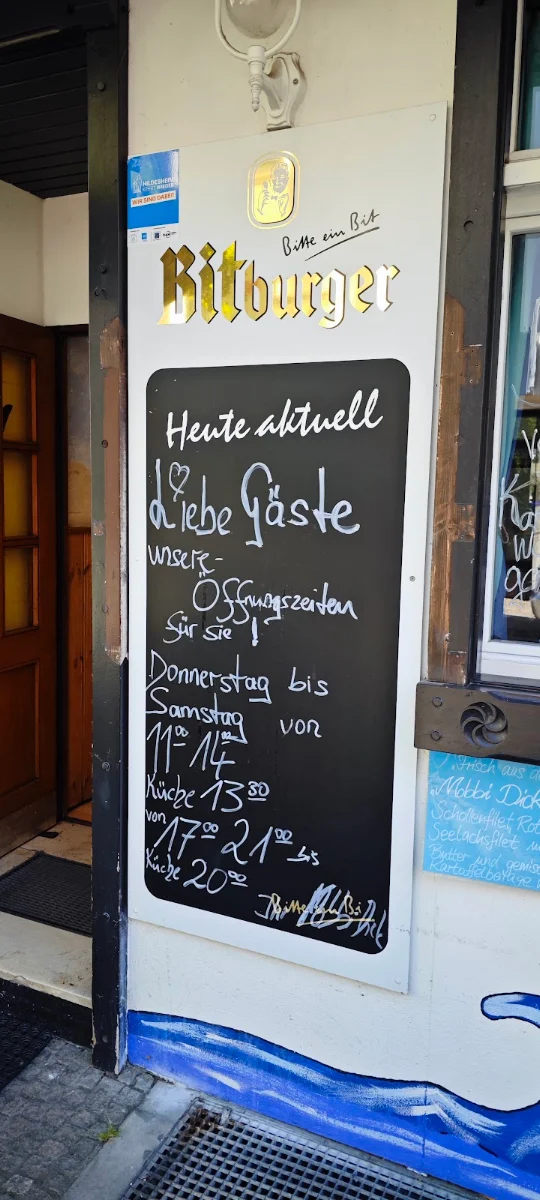 HILDESHEIM
WIR SIND DABEI!
Bitte ein Bit
Bitburger
Heute aktuell
Liebe Gäste
unsere
Öffnungszeiten
für Sie !
Donnerstag bis
Samstag von
11⁰⁰ - 14⁰⁰
Küche 13³⁰
von 17⁰⁰ 21⁰⁰ bis
Küche 20⁰⁰
Bitte ein Bit
Frisch aus d
Mobbi Dick
Schollenfilet
Seelachsfilet
Butter und